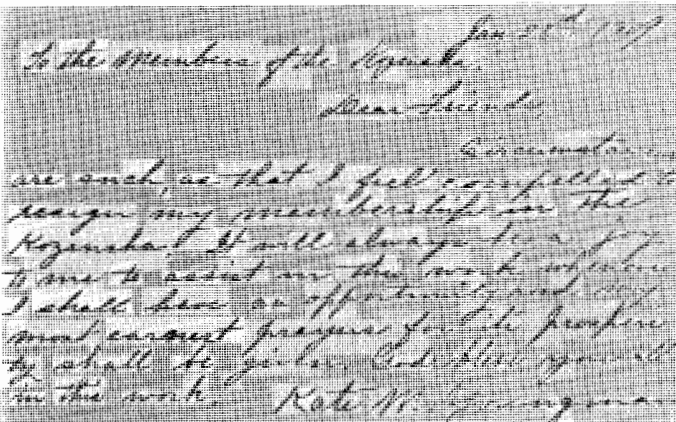 Jan 28th 1909
To the Members of the Kozensha.
Dear Friends,
Circumstances
are such, as that I feel compelled to
resign my membership in the
Kozensha. It will always be a joy
to me to assist in the work whenever
I shall have an opportunity and my
most earnest prayers for its prosperi
ty shall be given. God bless you all
in this work. Kate M. Youngman